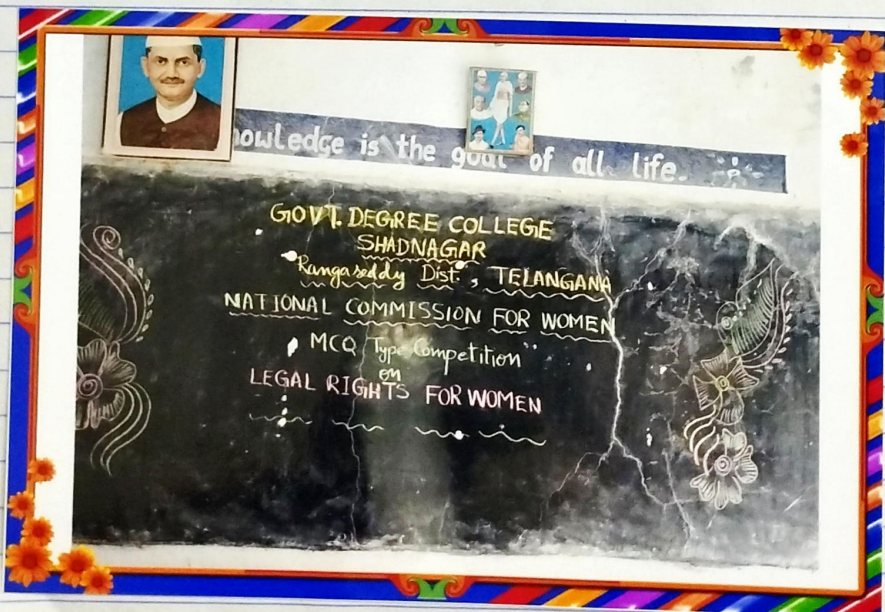 nowledge is the goal of all life.
GOVT. DEGREE COLLEGE
SHADNAGAR
Rangareddy Dist., TELANGANA
NATIONAL COMMISSION FOR WOMEN
MCQ Type Competition
on
LEGAL RIGHTS FOR WOMEN